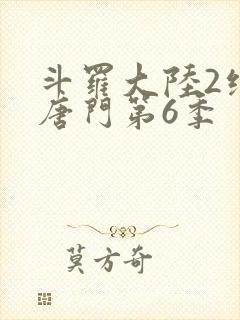 斗羅大陸2
唐門第6季
莫方奇